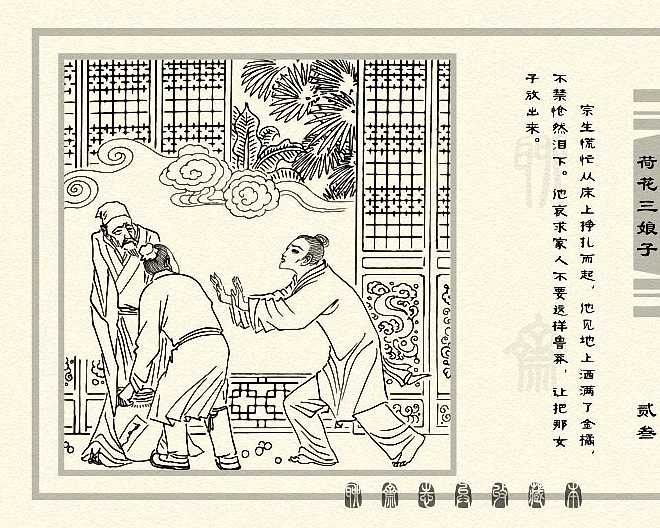 荷花三娘子
贰叁
宗生慌忙从床上挣扎而起，他见地上洒满了金橘，
不禁怆然泪下。他哀求家人不要这样鲁莽，让把那女
子放出来。
聊斋志异收藏本